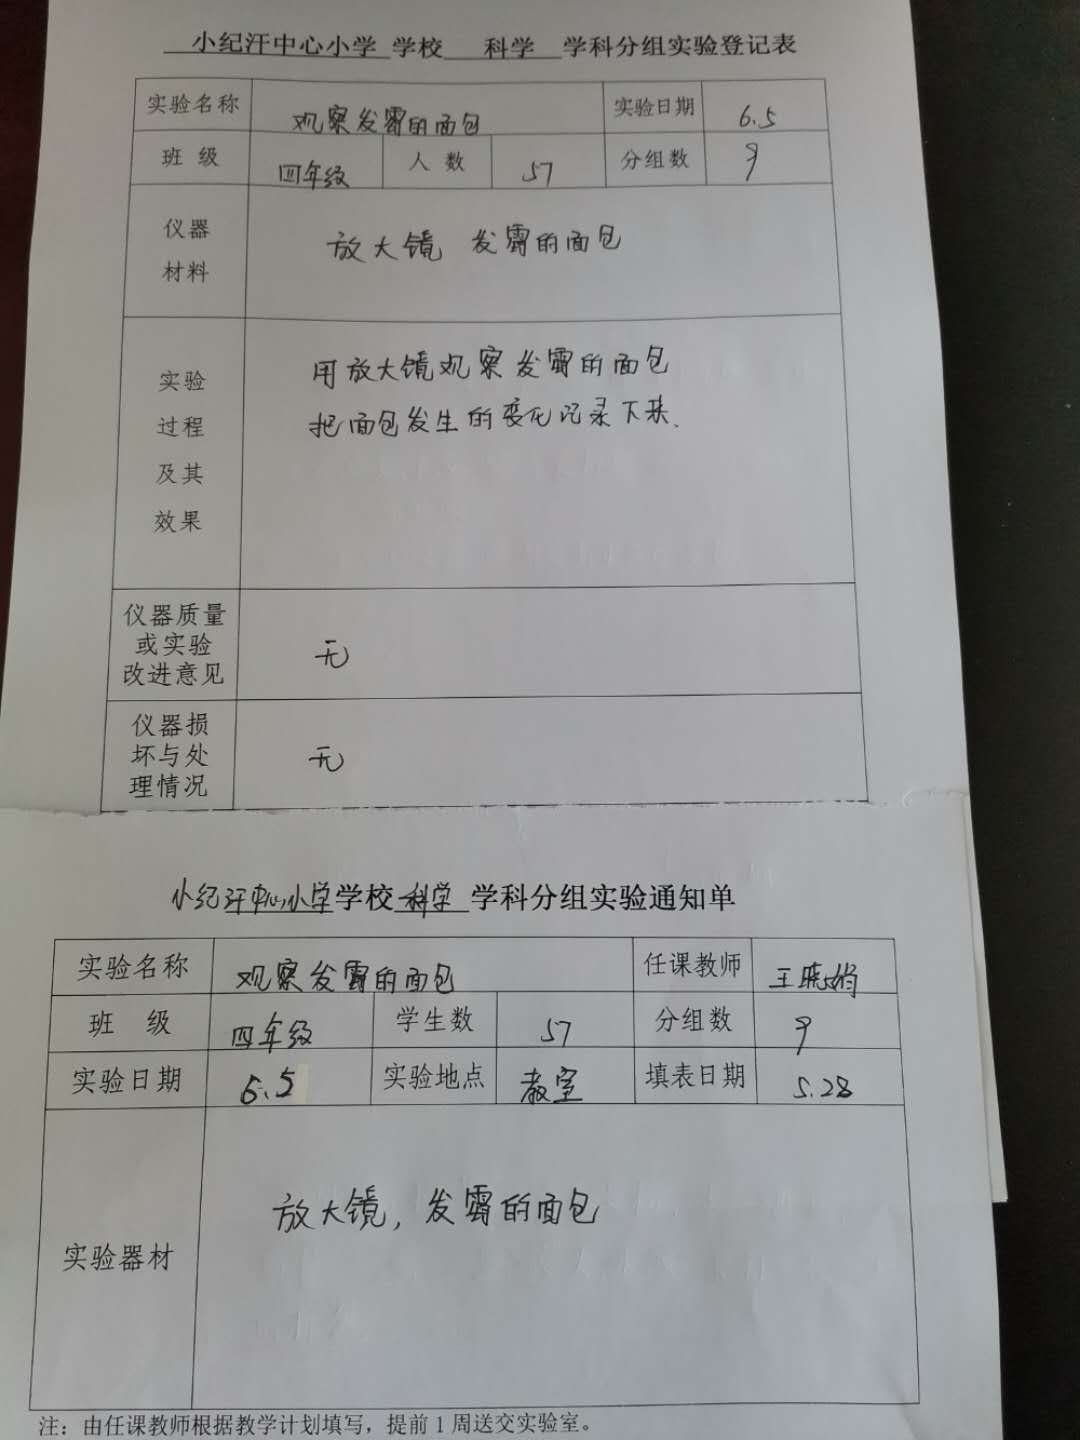 小纪汗中心小学 学校 科学 学科分组实验登记表
实验名称 观察发霉的面包 实验日期 6.5
班 级 四年级 人 数 57 分组数 9
仪器
材料
放大镜 发霉的面包
实验
过程
及其
效果
用放大镜观察发霉的面包
把面包发生的变化记录下来.
仪器质量
或实验
改进意见
无
仪器损
坏与处
理情况
无
小纪汗中心小学学校 科学 学科分组实验通知单
实验名称 观察发霉的面包 任课教师 王晓娟
班 级 四年级 学生数 57 分组数 9
实验日期 6.5 实验地点 教室 填表日期 5.28
实验器材 放大镜，发霉的面包
注：由任课教师根据教学计划填写，提前1周送交实验室。